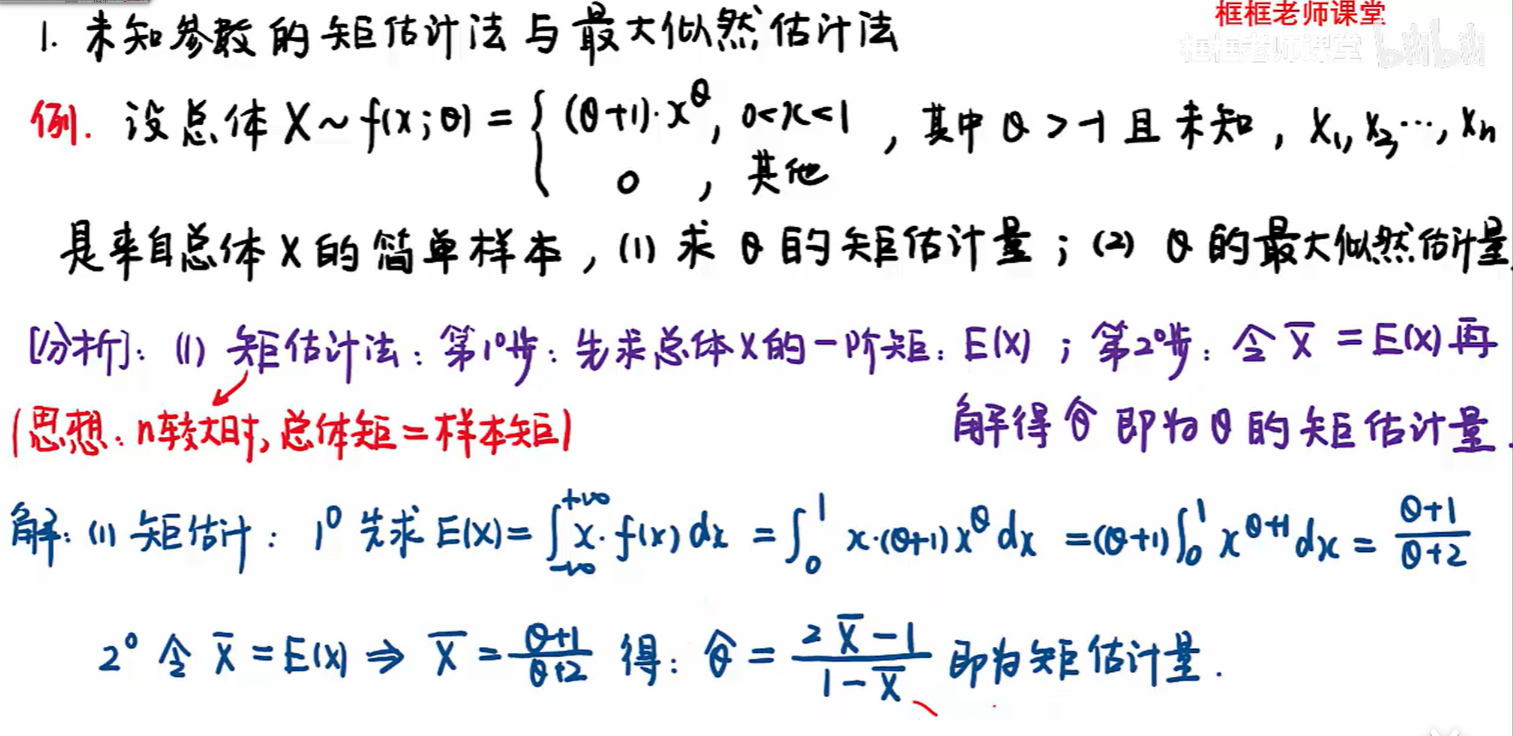 框框老师课堂
框框老师课堂 bilibili
1. 未知参数的矩估计法与最大似然估计法
例. 设总体 X~f(x;θ) = { (θ+1)·x^θ, 0<x<1 , 其中 θ>-1 且未知, X₁,X₂,…,Xn
0 , 其他
是来自总体X的简单样本, (1) 求 θ 的矩估计量; (2) θ 的最大似然估计量.
[分析]: (1) 矩估计法: 第1°步: 先求总体X的一阶矩: E(X) ; 第2°步: 令 X̄ = E(X) 再
(思想: n较大时, 总体矩=样本矩) 解得 θ̂ 即为 θ 的矩估计量.
解: (1) 矩估计: 1° 先求 E(X) = ∫_{-∞}^{+∞} x·f(x) dx = ∫_0^1 x·(θ+1)x^θ dx = (θ+1)∫_0^1 x^{θ+1} dx = (θ+1)/(θ+2)
2° 令 X̄ = E(X) ⇒ X̄ = (θ+1)/(θ+2) 得: θ̂ = (2X̄-1)/(1-X̄) 即为矩估计量.